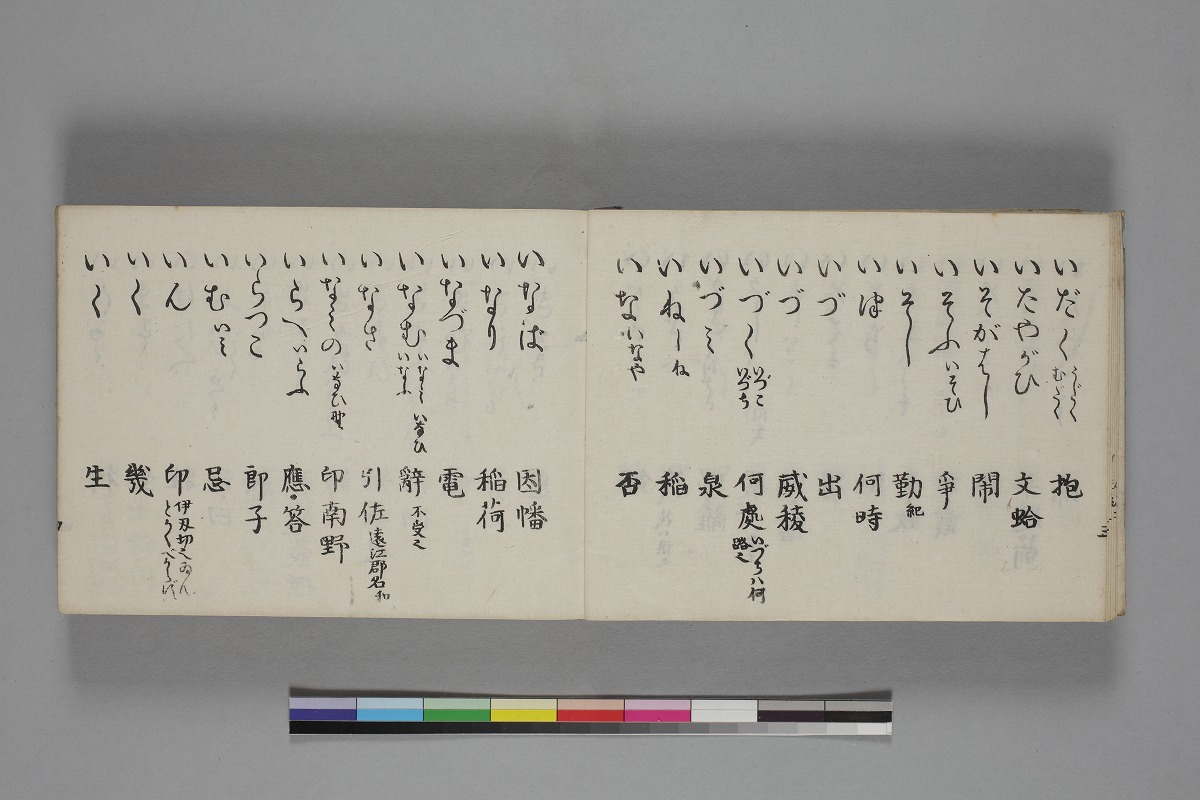 いだく うだく むだく 抱
いたやがひ 文蛤
いそがはし 閙
いそふ いそひ 爭
いそし 勤 紀
いつ 何時
いづ 出
いづ 威稜
いづく いづこ いづち 何處 いづらハ何 路之
いづミ 泉
いねしね 稲
いな いなや 否
いなば 因幡
いなり 稲荷
いなづま 電
いなむ いなミ いなひ いなふ 辭 不受之
いなさ 引佐 遠江郡名 和
いなミの いなひ野 印南野
いらへ いらふ 應・答
いらつこ 郎子
いむ いミ 忌
いん 印 伊刃切之
いく 幾
いく 生